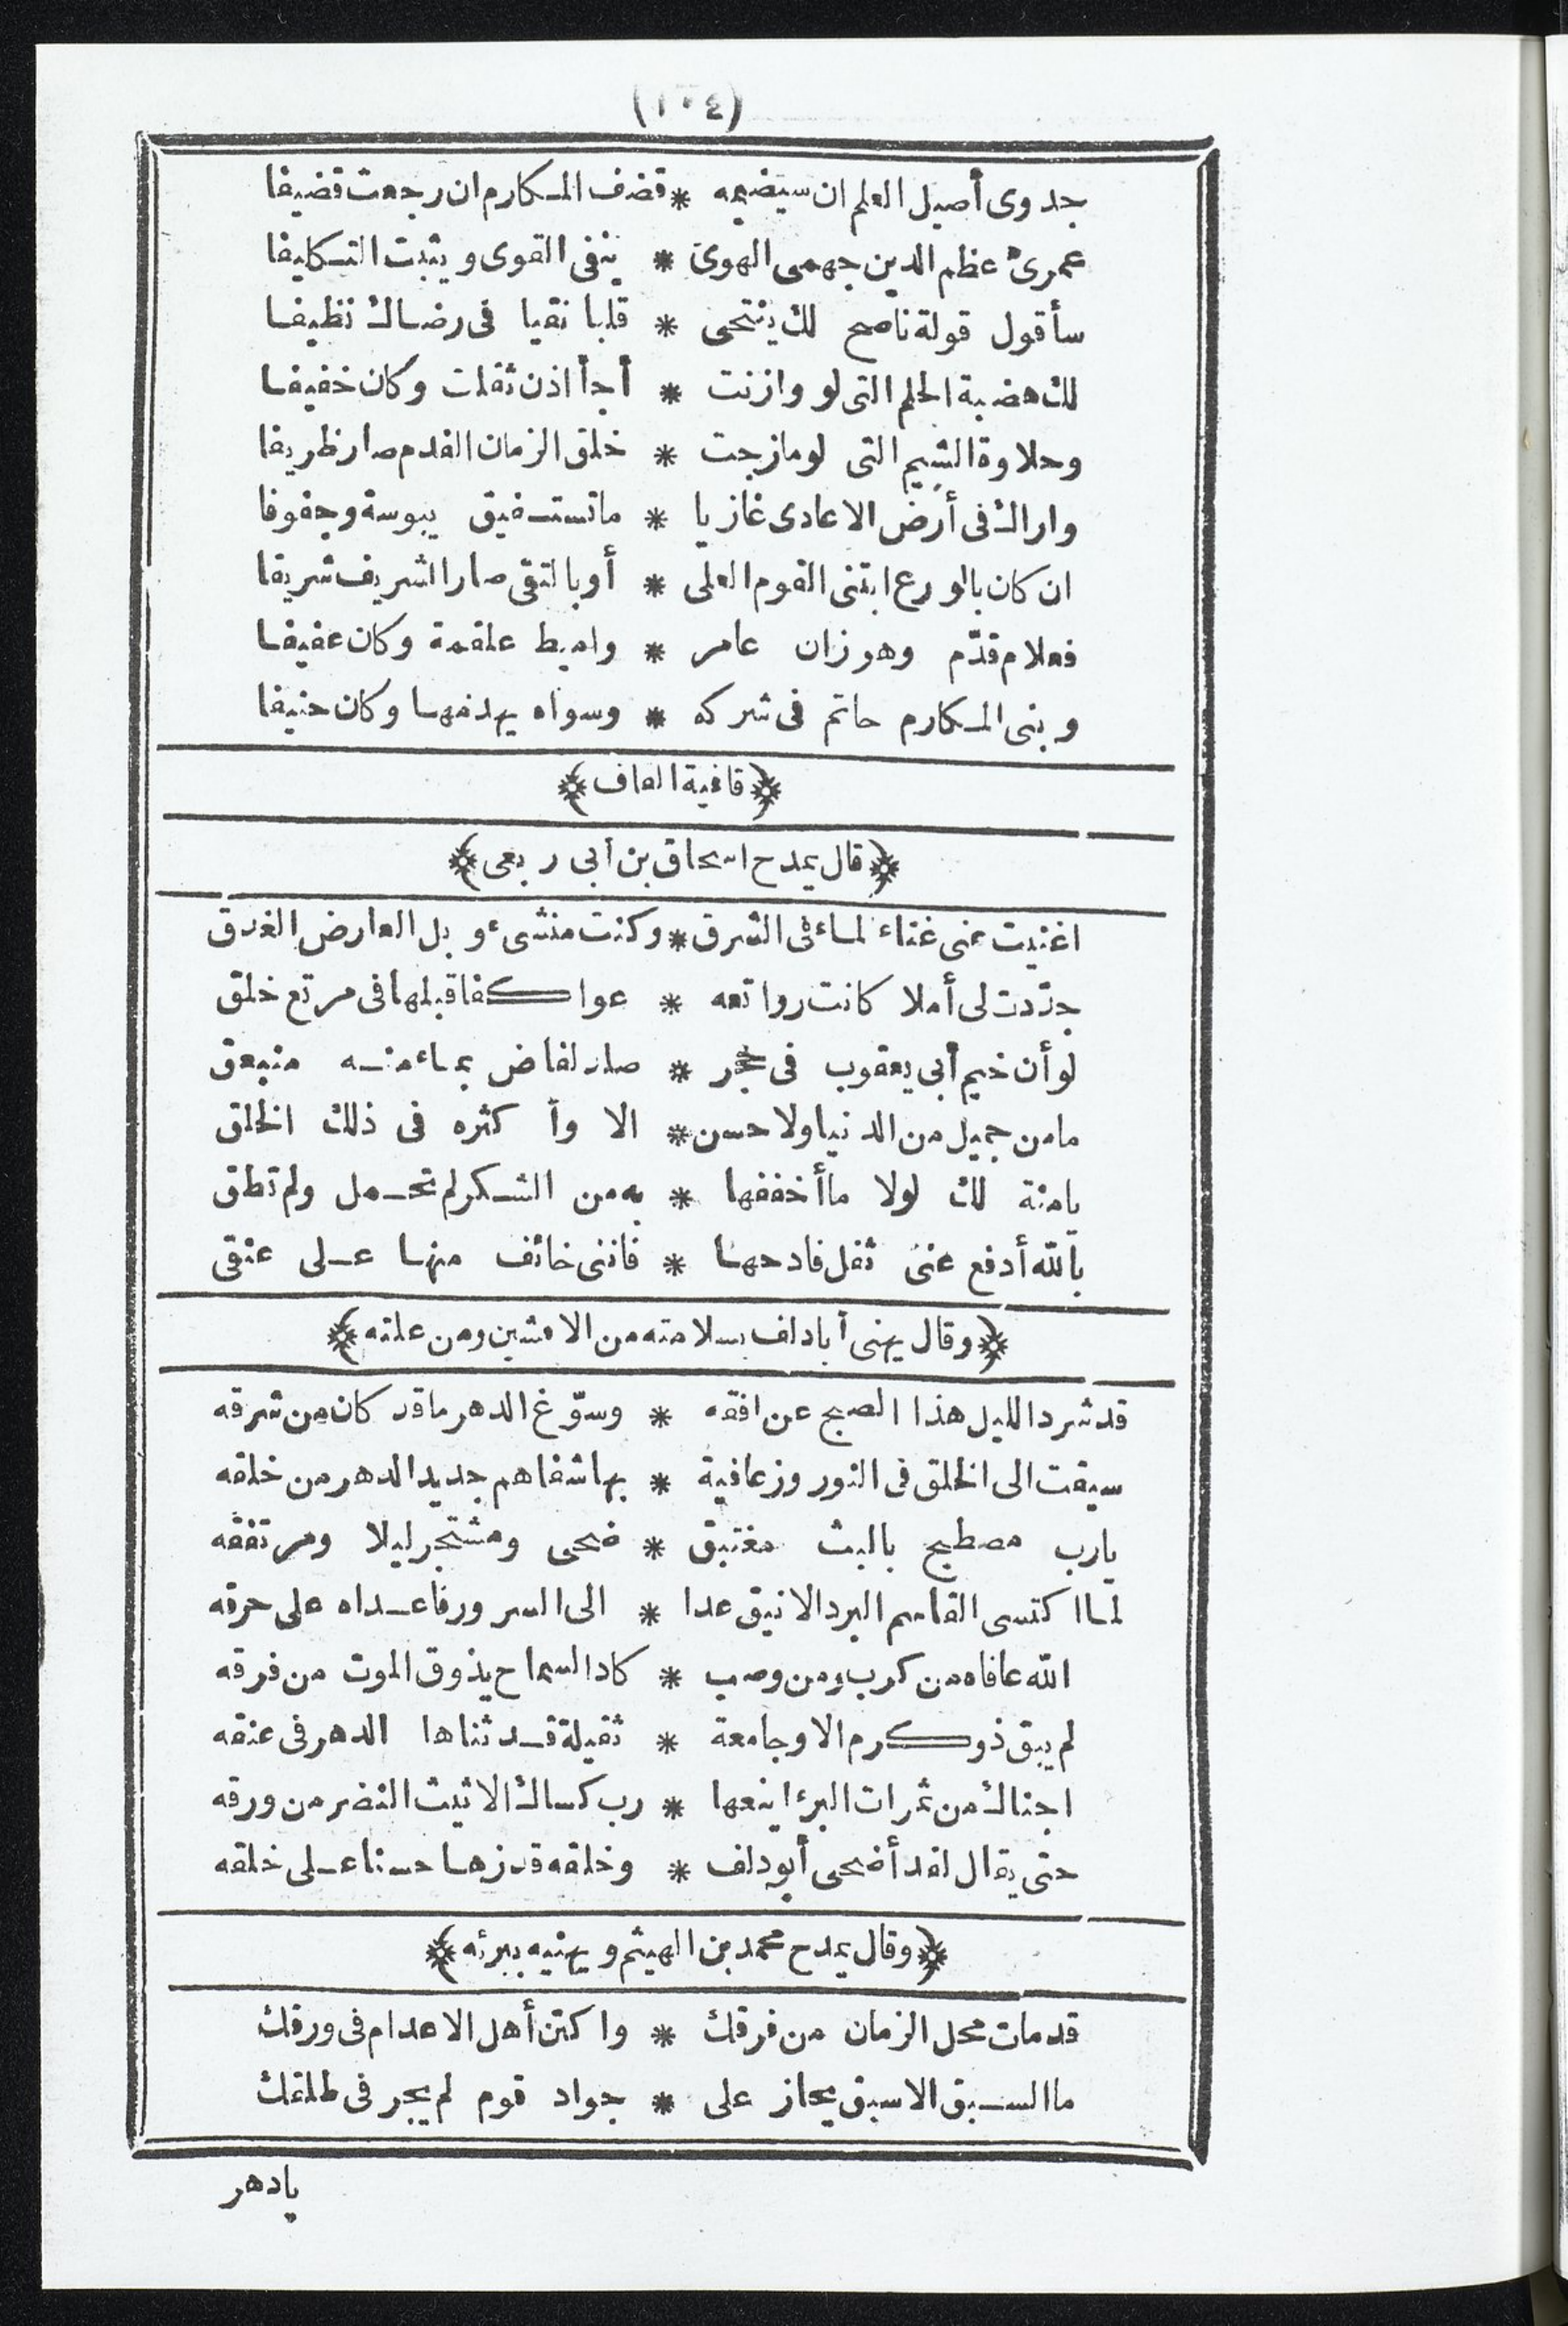 (١٠٤)
جدوى أصيل العلم ان سيضيمه * قضف المكارم ان رجعت قضيفا
عمرى عظم الدين جهمى الهوى * ينفى القوى ويثبت التكليفا
سأقول قولة ناصح لك ينتحى * قلبا نقيا فى رضاك نظيفا
لك هضبة الحلم التى لو وازنت * أجأ اذن ثقلت وكان خفيفا
وحلاوة الشيم التى لو مازجت * خلق الزمان الفدم صار ظريفا
واراك فى أرض الاعادى غازيا * ماتستفيق يبوسة وجفوفا
ان كان بالورع ابتنى القوم العلى * أو بالتقى صار الشريف شريفا
فعلام قدّم وهو زان عامر * واميط علقمة وكان عفيفا
وبنى المكارم حاتم فى شركه * وسواه يهدمها وكان حنيفا
﴿قافية القاف﴾
﴿قال يمدح اسحاق بن أبى ربعى﴾
اغنيت عنى غناء لماء فى الشرق * وكنت منشىء وبل العارض الغدق
جدّدت لى أملا كانت رواتعه * عواكفا قبلها فى مرتع خلق
لو أن خيم أبى يعقوب فى حجر * صلد لفاض بماء منه منبعق
مامن جميل من الدنيا ولا حسن * الا وأكثره فى ذلك الخلق
يامنة لك لولا ماأخففها * به من الشكر لم تحمل ولم تطق
بالله أدفع عنى ثقل فادحها * فاننى خائف منها على عنقى
﴿وقال يهنى أبادلف بسلامته من الافشين ومن علته﴾
قد شرد الليل هذا الصبح عن افقه * وسوّغ الدهر ماقد كان من شرقه
سيقت الى الخلق فى النوروز عافية * بها شفاهم جديد الدهر من خلقه
يارب مصطبح بالبث مغتبق * ضحى ومشتجر ليلا ومرتفقه
لما اكتسى القاسم البرد الانيق عدا * الى السرور فاعداه على حرقه
الله عافاه من كرب ومن وصب * كاد السماح يذوق الموت من فرقه
لم يبق ذو كرم الا وجامعة * ثقيلة قد ثناها الدهر فى عنقه
اجناك من ثمرات البرء اينعها * رب كساك الاثيث النضر من ورقه
حتى يقال لقد أضحى أبو دلف * وخلقه قد زها حسنا على خلقه
﴿وقال يمدح محمد بن الهيثم ويهنيه ببرئه﴾
قد مات محل الزمان من فرقك * واكتن أهل الاعدام فى ورقك
ما السبق الا سبق يحاز على * جواد قوم لم يجر فى طلقك
يادهر